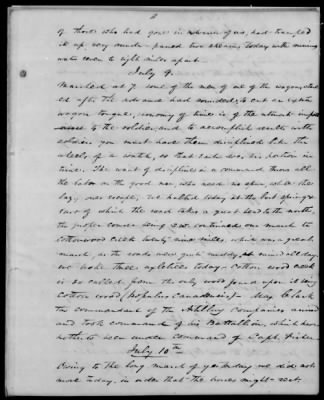 of those who had gone in advance of us, had trampled
it up, very much - passed two streams today with running
water seven to eight miles apart.
July 9.
Marched at 7. some of the men of one of the wagons started
ed after the advance had sounded, to cut an extra
wagon tongue, economy of time is of the utmost
to the soldier, and to accomplish results with
soldiers you must have them disciplined like the
wheels of a watch, so that each does his portion in
time. The want of discipline in a command throws all
the labor on the good men, who need no spur, while the
lazy, ones escape, we halted today at the Lost spring &
east of which the road takes a great bend to the north,
the proper course being S.W. continued our march to
Cottonwood Creek twenty nine miles, which was a great
march, as the roads were quite muddy, mind all day.
we broke three axletrees today - Cotton wood creek
is so called from the only wood found upon it being
Cotton wood (Populus Canadensis) - Maj Clark
the commandant of the Artillery Companies arrived
and took command of his Battallion, which have
hitherto been under command of Capt. Fisher
July 10th
Owing to the long march of yesterday we did not
move today, in order that the horses might rest.